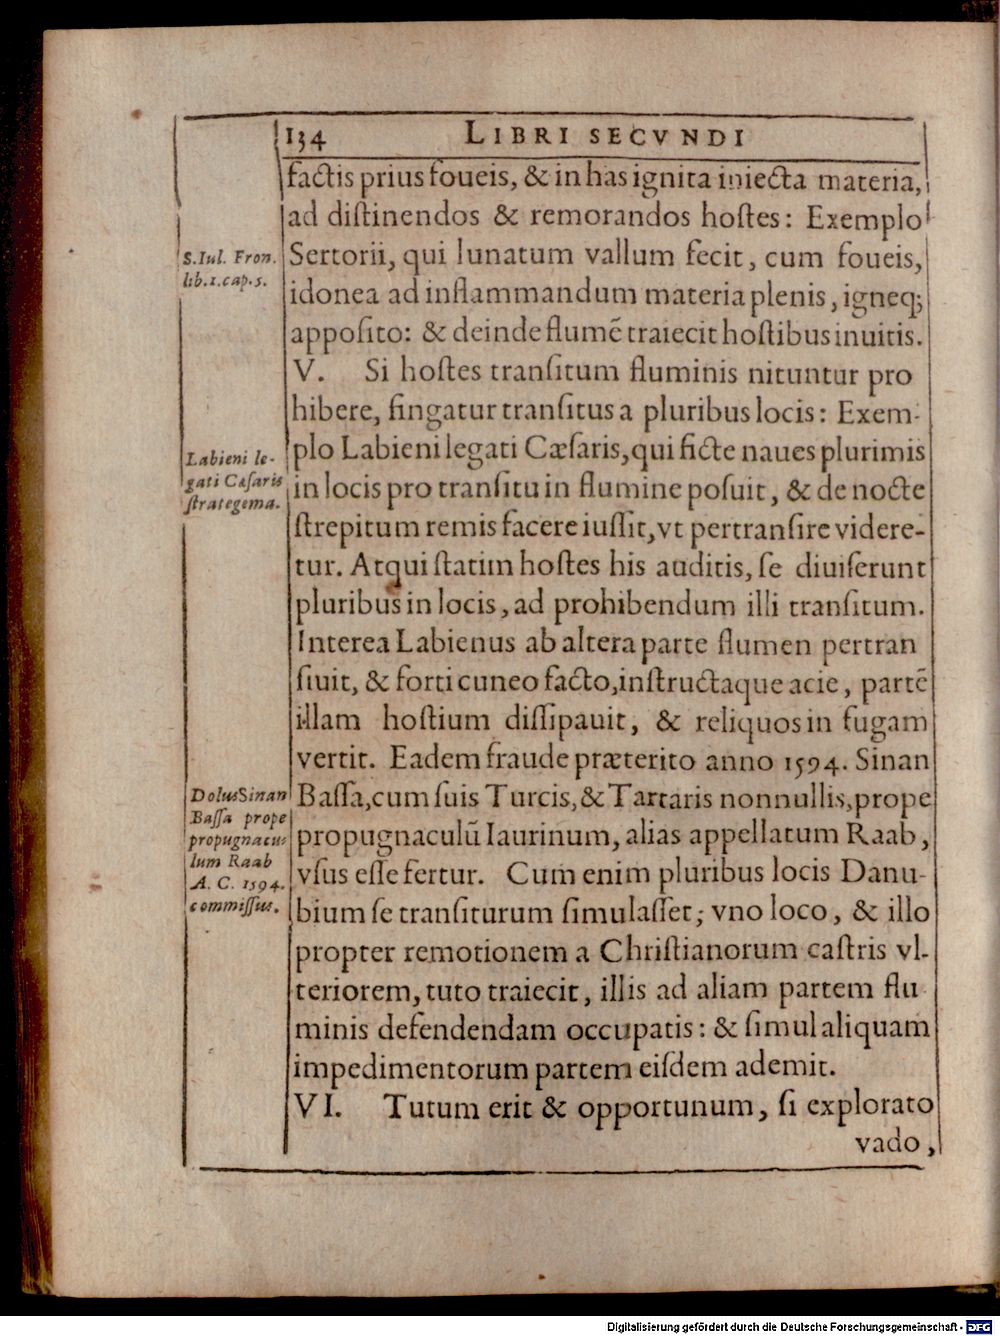 134 LIBRI SECVNDI
factis prius foueis, & in has ignita iniecta materia,
ad diſtinendos & remorandos hoſtes: Exemplo
Sertorii, qui lunatum vallum fecit, cum foueis,
idonea ad inflammandum materia plenis, igneq;
appoſito: & deinde flumẽ traiecit hoſtibus inuitis.
S. Iul. Fron.
lib. 1. cap. 5.
V. Si hoſtes tranſitum fluminis nituntur pro
hibere, fingatur tranſitus a pluribus locis: Exem-
plo Labieni legati Cæſaris, qui ficte naues plurimis
in locis pro tranſitu in flumine poſuit, & de nocte
ſtrepitum remis facere iuſſit, vt pertranſire videre-
tur. Atqui ſtatim hoſtes his auditis, ſe diuiſerunt
pluribus in locis, ad prohibendum illi tranſitum.
Interea Labienus ab altera parte flumen pertran
ſiuit, & forti cuneo facto, inſtructaque acie, partẽ
illam hoſtium diſſipauit, & reliquos in fugam
vertit. Eadem fraude præterito anno 1594. Sinan
Baſſa, cum ſuis Turcis, & Tartaris nonnullis, prope
propugnaculũ Iaurinum, alias appellatum Raab,
vſus eſſe fertur. Cum enim pluribus locis Danu-
bium ſe tranſiturum ſimulaſſet; vno loco, & illo
propter remotionem a Chriſtianorum caſtris vl-
teriorem, tuto traiecit, illis ad aliam partem flu
minis defendendam occupatis: & ſimul aliquam
impedimentorum partem eiſdem ademit.
Labieni le-
gati Cæſaris
ſtrategema.
Dolus Sinan
Baſſa prope
propugnacu-
lum Raab
A. C. 1594.
commiſſus.
VI. Tutum erit & opportunum, ſi explorato
vado,
Digitalisierung gefördert durch die Deutsche Forschungsgemeinschaft - DFG